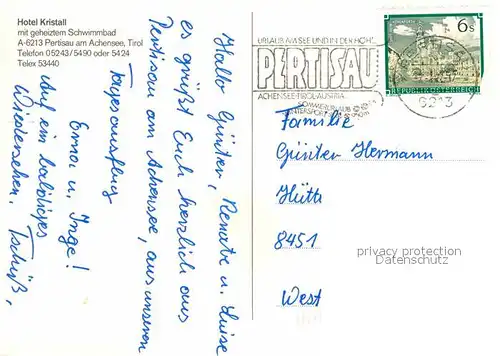 Hotel Kristall
mit geheiztem Schwimmbad
A-6213 Pertisau am Achensee, Tirol
Telefon 05243/5490 oder 5424
Telex 53440
Hallo Günter, Renate u. Luise
es grüßt Euch herzlich aus
Pertisau am Achensee, aus unseren
Tagesausflug
Erna u. Inge!
Auf ein baldiges
Wiedersehen. Tschüß,
URLAUB AM SEE UND IN DER HÖH'
PERTISAU
ACHENSEE-TIROL-AUSTRIA
SOMMERURLAUB
WINTERSPORT
6213
6 S
REPUBLIK ÖSTERREICH
Familie
Günter Hermann
Hütt
8451
West
privacy protection
Datenschutz